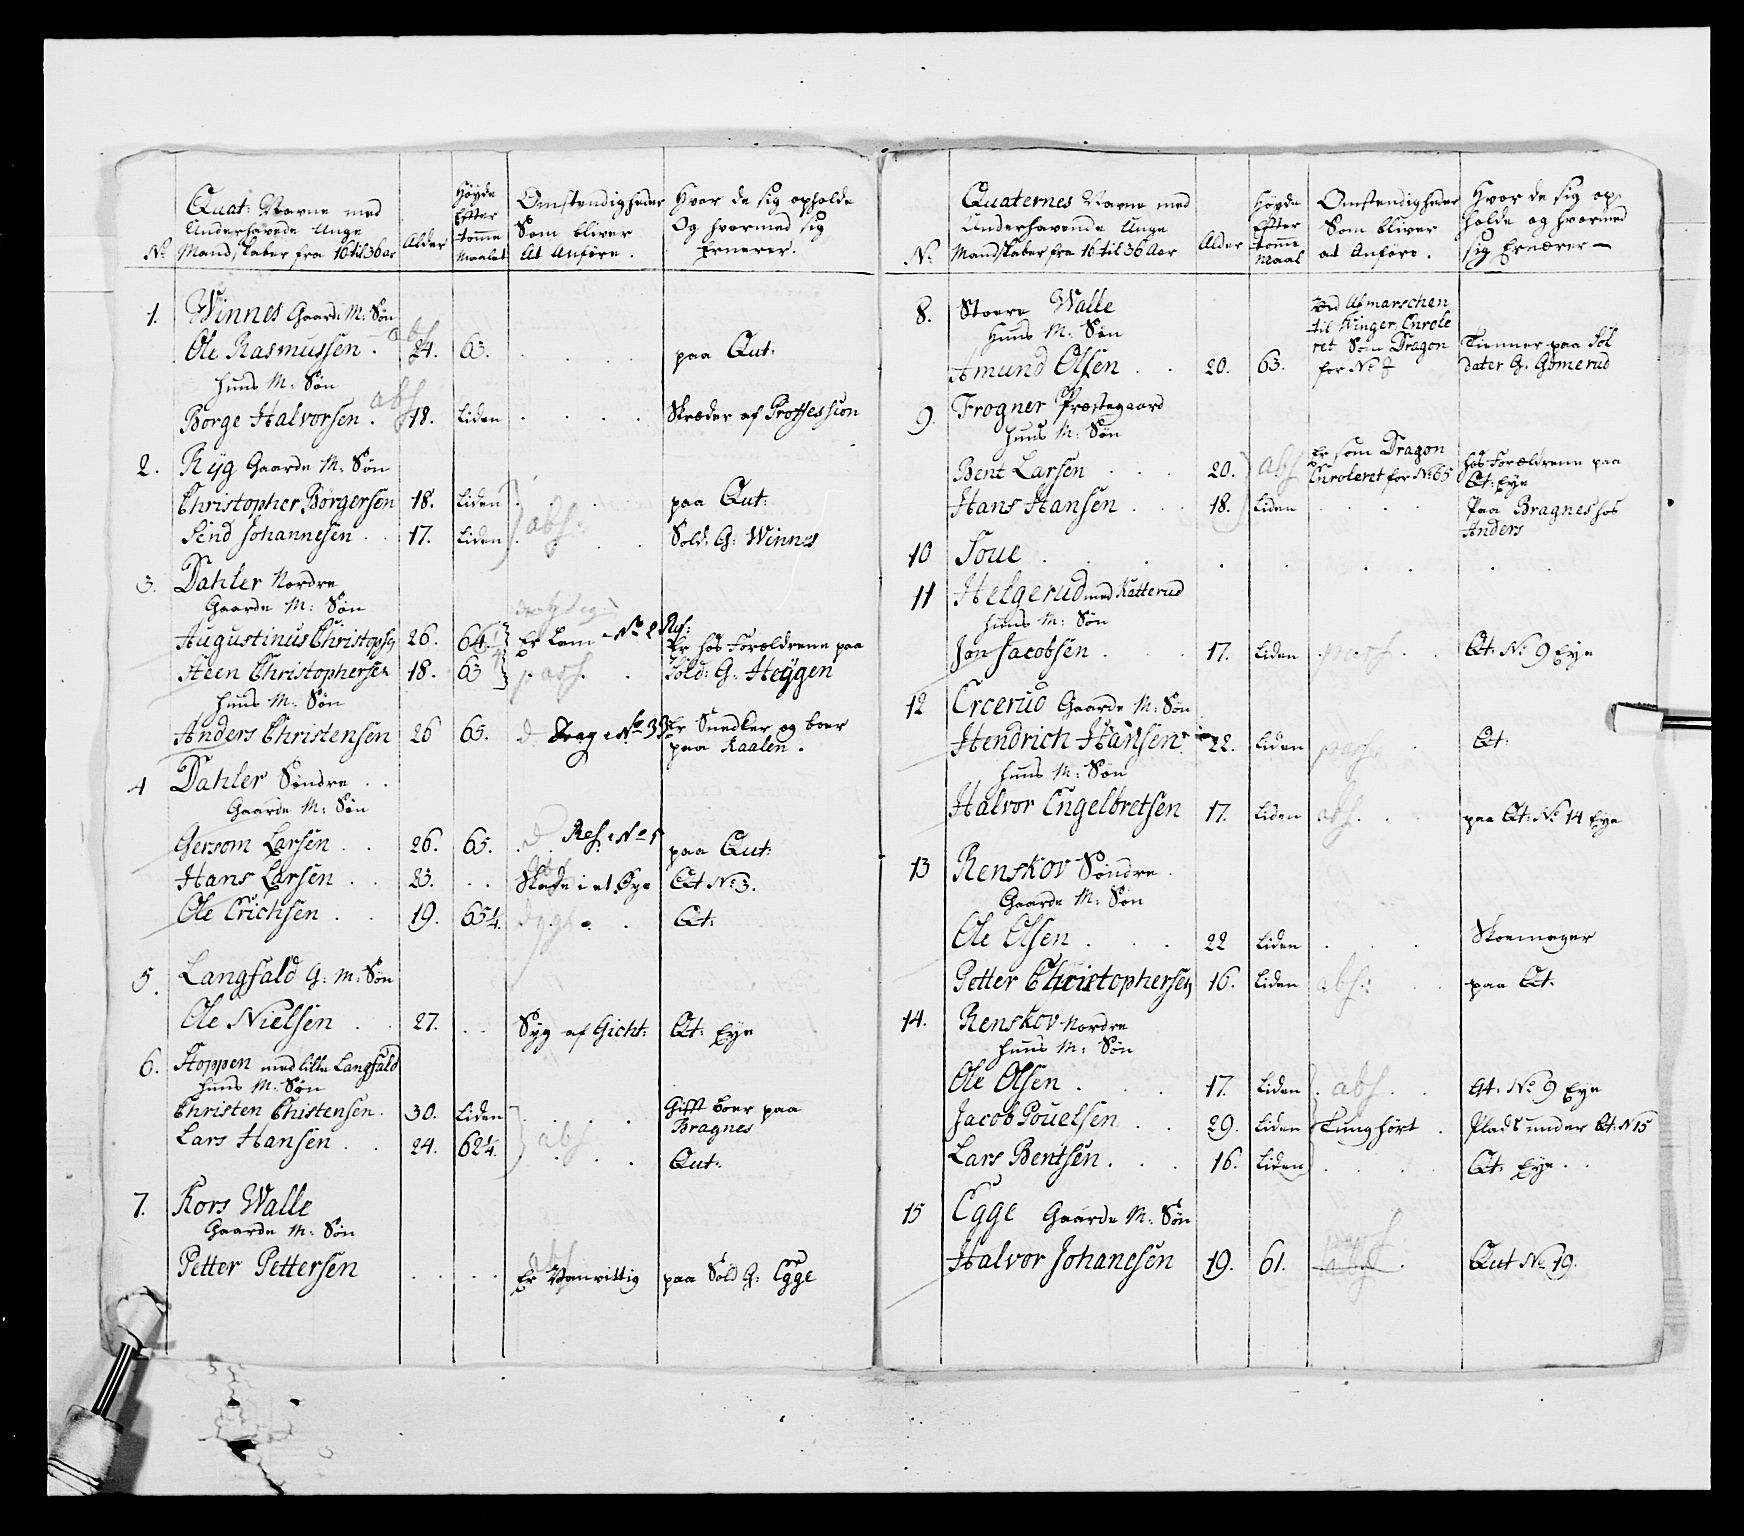 Quat: Navne med
Underhavende Unge
No Mandskaber fra 16 til 36 aar
Alder
Høyde Efter tomme Maalet
Omstendigheder Som bliver At Anføre.
Hvor de sig opholde Og hvormed sig Ernerer.
1. Winnes Gaard: M: Søn
Ole Rasmussen . abs 24. 63. paa Qut:
Huus M: Søn
Borge Halvorsen . abs 18. Liden Skræder af Proffession
2. Ryg Gaarde M: Søn
Christopher Borgersen 18. Liden paa Qut:
Send Johannesen . 17. Liden abs: Sold: G: Winnes
3. Dahler Nordre
Gaarde M: Søn
Augustinus Christophs 26. 64 Er Lam No 2 Ref:
Er hos Forældrene paa
Steen Christophersen 18. 63 pass. Sold: G. Heygen
Huus M: Søn
Anders Christensen 26 63. d Drag: No 33 Er Snedker og boer
paa Kaalen.
4 Dahler Søndre
Gaarde M: Søn
Gersom Larsen . . 26. 65. D Ref: No 1 paa Qut:
Hans Larsen . . 23. . . Skade i et Øye Qt No 3.
Ole Erichsen . . 19. 65 1/4. Qt:
5. Langfald G: M: Søn
Ole Nielsen . . 27. . . Syg af Gicht: Qt: Eye
6. Stoppen med lille Langfald
Huus M: Søn
Christen Chistensen. 30. Liden Gifft boer paa
Bragnes
Lars Hansen . . 24. 62 1/4. abs Qut:
7. Kors Walle
Gaarde M: Søn
Petter Pettersen . . . . abs
Er Vanvittig paa Sold G: Egge
Quaternes Navne med
Underhavende Unge
No. Mandskaber fra 16 til 36 Aar
Alder
Høyde Efter tomme Maal
Omstendigheder Som bliver at Anføre.
Hvor de sig opholde og hvormed sig Ernærer —
8. Stoere Walle
Huus M: Søn
Amund Olsen . . 20. 63.
ved Afmarschen
til Kinger, Enrole
ret Som Dragon
for No 7
Tienner paa Sol
dater G. Gomerud
9. Frogner Præstegaard
Huus M: Søn
Bent Larsen . . . 20. abs Er som Dragon
Enroleret for No 65 hos Forældrene paa
Qt: Eye
Hans Hansen . . . 18. Liden Paa Bragnes hos
Anders
10 Soue
11 Helgerud med Katterud
Huus M: Søn
Jon Jacobsen . . 17. Liden pass . . Qt: No 9 Eye
12 Ercerud Gaarde M: Søn
Hendrich Hansen . 22. Liden pass Qt:
Huus M: Søn
Halvor Engelbretsen 17. Liden abs. . . paa Qt: No 14 Eye
13 Renskov Søndre .
Gaarde M: Søn
Ole Olsen . . . 22 Liden . . . Skoemager
Petter Christophersen 16. Liden abs: paa Qt.
14. Renskov Nordre
Huus M: Søn
Ole Olsen . . . 17. Liden . abs. . . Qt: No 9 Eye
Jacob Pouelsen . . 29. Liden Tunghört . Plads under Qt: N 15
Lars Bentsen . . . 16. Liden . . . . Qt: Eye . .
15 Egge Gaarde M: Søn
Halvor Johanesen 19. 61. pass
abs Qut No 19.